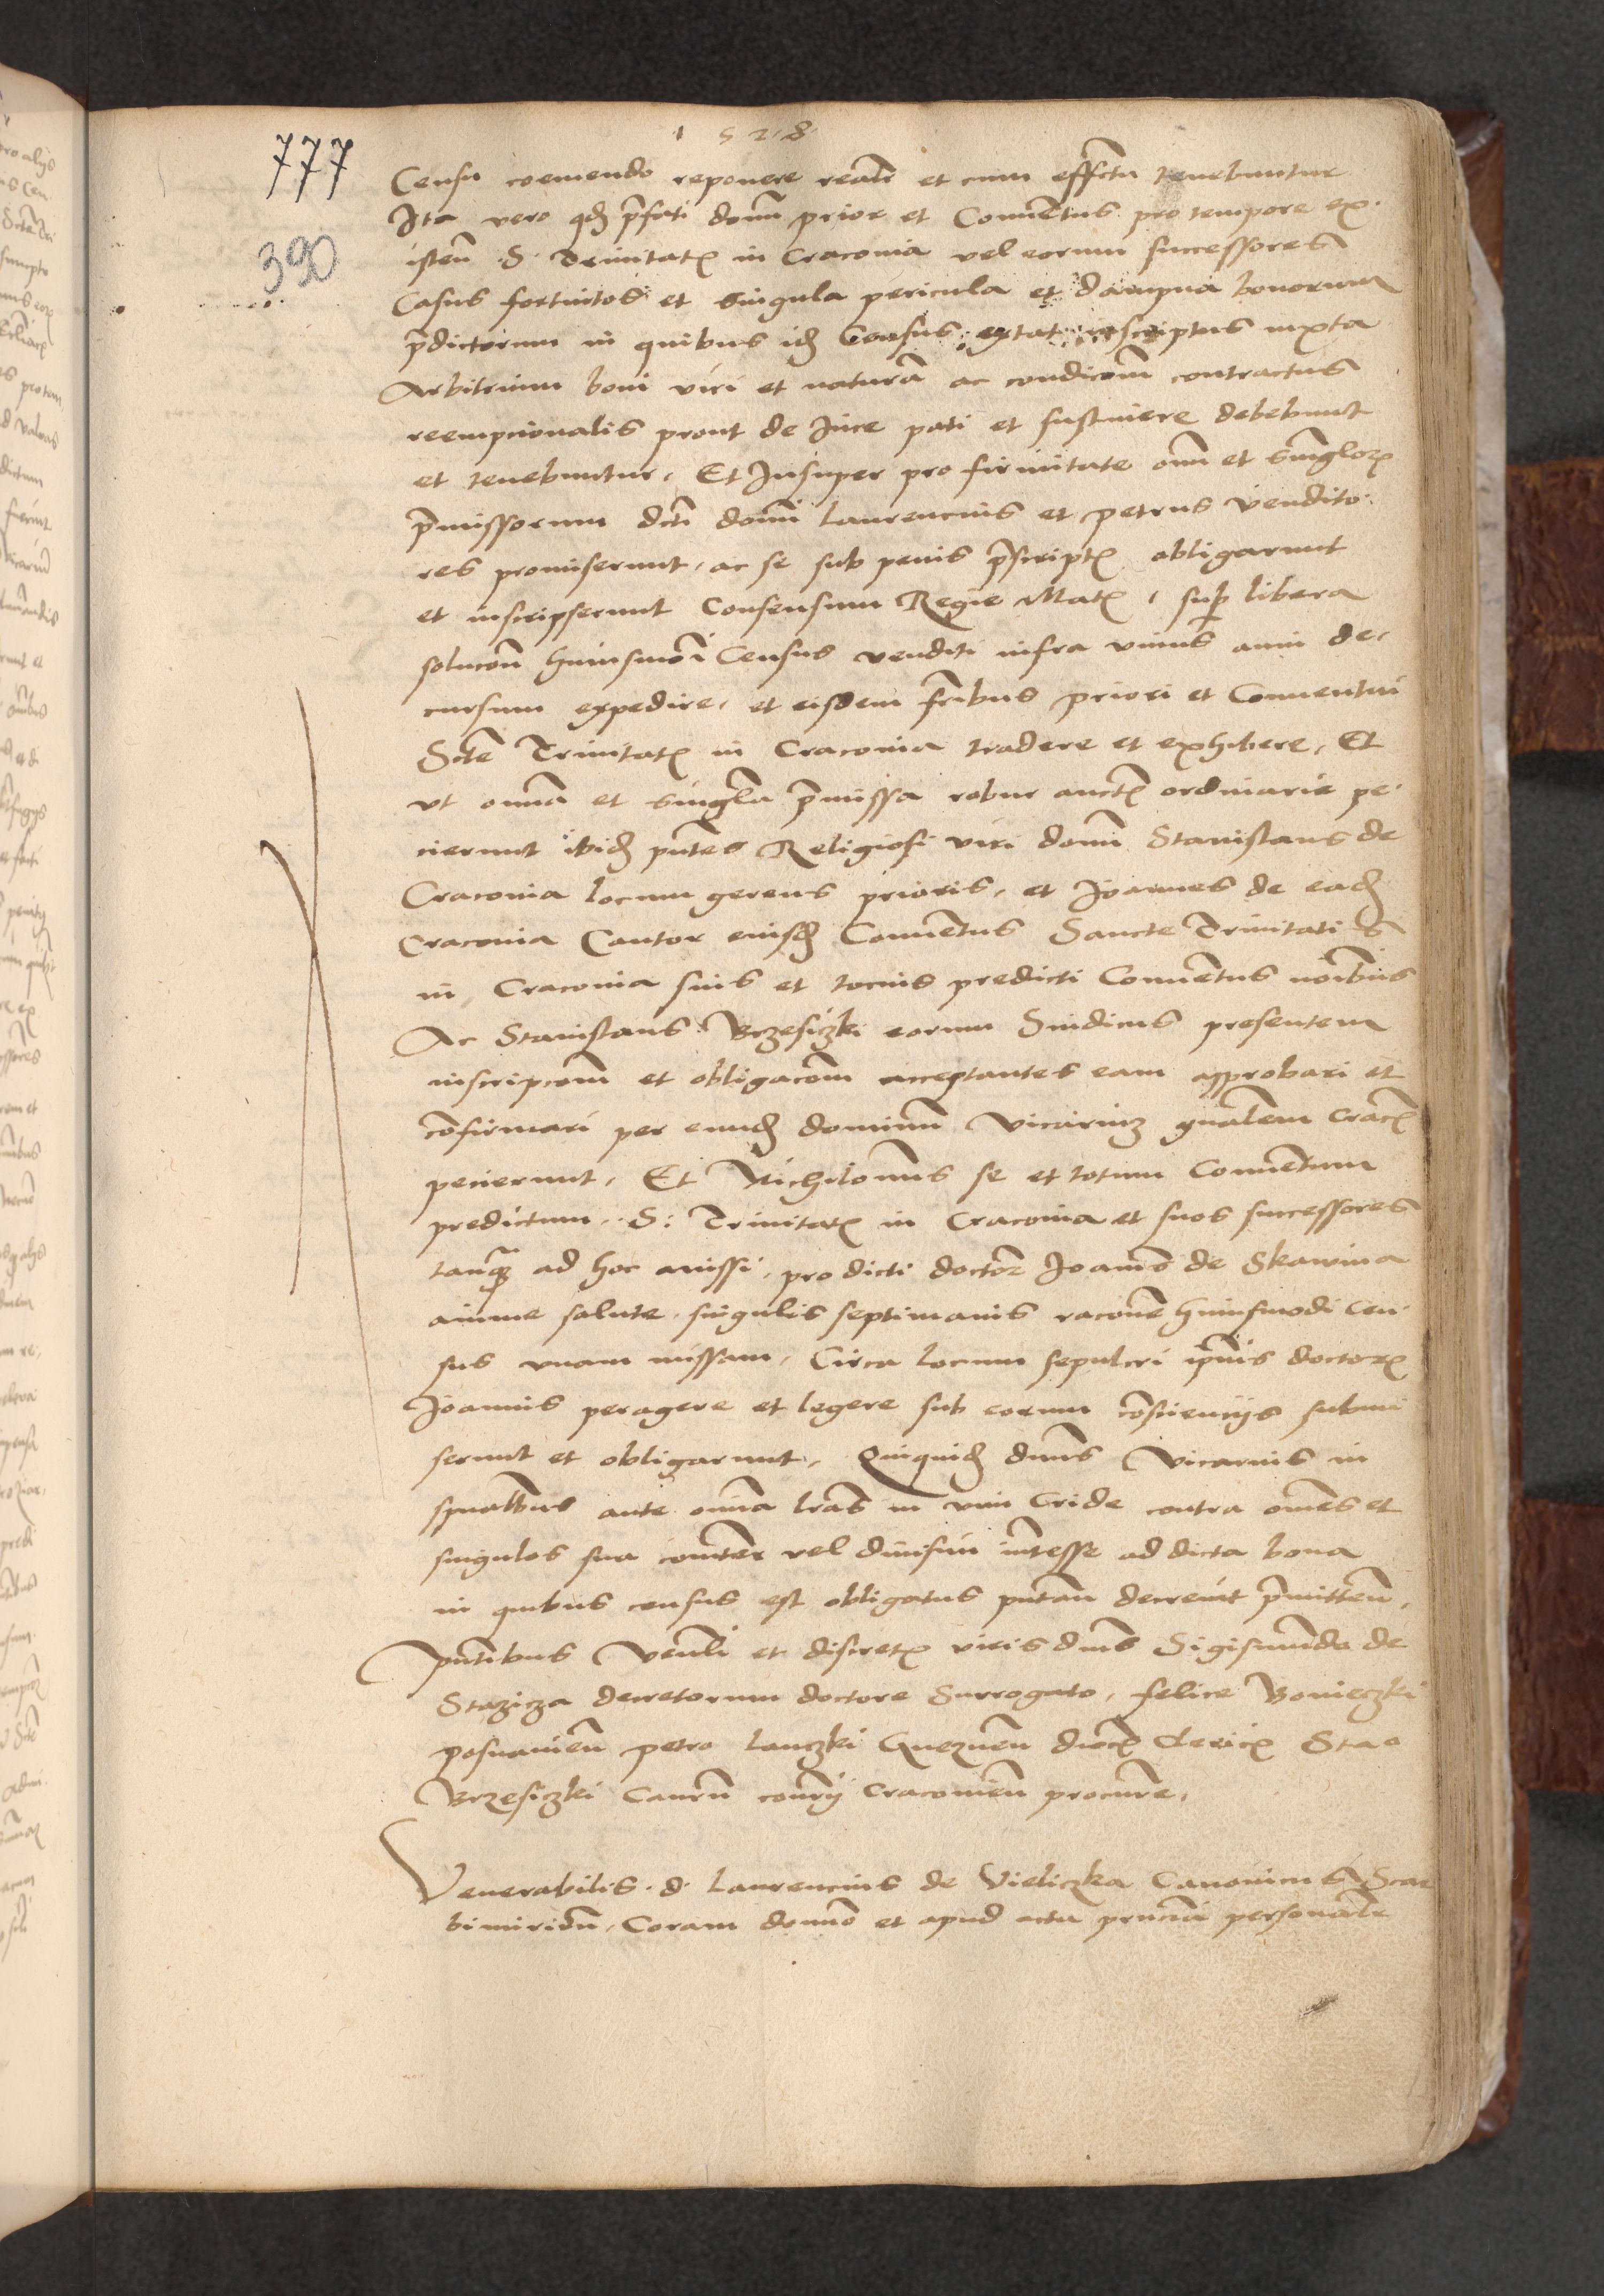 1528
777
390
Censu coemendo reponere realr et cum effctu tenebuntur
Ita vero qd prfati domi prior et Conuetus pro tempore ex-
isten S. Trinitat in Craconia vel eorum successores
Casus fortuitos et singula pericula et dampna bonorum
prdictorum in quibus id Census extat inscriptus iuxta
Arbitrium boni viri et natura ac condicom contractus
reempcionalis prout de Iure pati et sustinere debebunt
et tenebuntur. Et Insuper pro firmitate oim et singlor
prmissorum dcti domi laurencius et petrus vendito-
res promiserunt, ac se sub penis prscript obligarunt
et inscripserunt Consensum Regie Mat, sup libera
solucom huiusmoi Census venditi infra vnius anni de-
cursum expedire, et eisdem fribus priori et Conuentui
Scte Trinitat in Craconia tradere et exhibere, Et
vt omnia et singla prmissa robur auct ordinarie pe-
cierunt ibid pntes Religiosi viri domi Stanislaus de
Craconia locum gerens prioris, et Joannes de ead
Craconia Cantor eiusd Conuetus Sancte Trinitatis
in Craconia suis et tocius predicti Conuetus noibus
Ac Stanislaus Brzesiczki eorum Sindicus presentem
inscripcom et obligacom acceptantes eam approbari et
cofirmari per eund dominum Vicariu gnalem Crac
pecierunt, Et Nichilomus se et totum Conuetum
predictum S: Trinitat in Craconia et suos successores
tanq ad hoc missi, pro dicti doctor Joannis de Skawina
anime salute singulis septimanis racone huiusmodi Cen-
sus vnam missam, Circa locum sepulcri iprius doctor
Joannis peragere et legere sub eorum cosciencijs submi
serunt et obligarunt, Quiquid dnus Vicarius in
spualibus ante omia lras in vim Cride contra omes et
singulos sua comter vel diuisim intesse ad dicta bona
in quibus census est obligatus putan decreuit prmitten,
Pntibus Venli et discret viris dnis Sigismundo de
Stazicza decretorum doctore Surrogato, felice Bonieczki
posnanien petro lanczki Gneznen dioc Cleric Stao
Brzesiczki Causru consry Craconien procure,
Venerabilis d. laurencius de Vieliczka Canonicus Scar
bimirien, Coram domo et apud acta prncia personalr